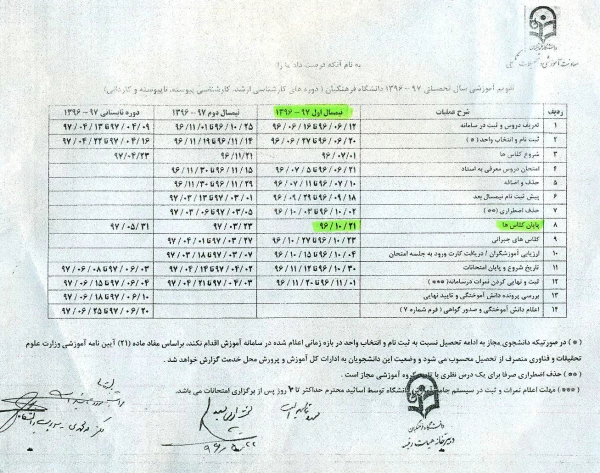 دانشگاه فرهنگیان
معاونت آموزشی و تحصیلات تکمیلی
به نام آنکه فرصت داد ما را
تقویم آموزشی سال تحصیلی ۹۷ - ۱۳۹۶ دانشگاه فرهنگیان ( دوره های کارشناسی ارشد، کارشناسی پیوسته، ناپیوسته و کاردانی)
ردیف شرح عملیات نیمسال اول ۹۷ - ۱۳۹۶ نیمسال دوم ۹۷ - ۱۳۹۶ دوره تابستانی ۹۷ - ۱۳۹۶
۱ تعریف دروس و ثبت در سامانه ۹۶/۰۶/۱۲ تا ۹۶/۰۶/۱۶ ۹۶/۱۰/۲۵ تا ۹۶/۱۱/۰۱ ۹۷/۰۴/۰۹ تا ۹۷/۰۴/۱۳
۲ ثبت نام و انتخاب واحد(*) ۹۶/۰۶/۲۰ تا ۹۶/۱۱/۱۴ تا ۹۶/۱۱/۱۹ ۹۷/۰۴/۱۶ تا ۹۷/۰۴/۲۲
۳ شروع کلاس ها ۹۶/۰۷/۰۱ ۹۶/۱۱/۲۱ ۹۷/۰۴/۲۳
۴ امتحان دروس معرفی به استاد ۹۶/۰۶/۲۱ تا ۹۶/۰۷/۰۵ ۹۶/۱۱/۱۵ تا ۹۶/۱۱/۳۰
۵ حذف و اضافه ۹۶/۰۷/۱۰ تا ۹۶/۰۷/۱۱ ۹۶/۱۱/۲۹ تا ۹۶/۱۱/۳۰
۶ پیش ثبت نام نیمسال بعد ۹۶/۰۹/۱۸ تا ۹۶/۰۹/۲۹ ۹۷/۰۳/۰۱ تا ۹۷/۰۳/۱۳
۷ حذف اضطراری (**) ۹۶/۱۰/۰۲ تا ۹۶/۱۰/۰۳ ۹۷/۰۳/۰۵ تا ۹۷/۰۳/۰۶
۸ پایان کلاس ها ۹۶/۱۰/۲۱ ۹۷/۰۳/۲۳ ۹۷/۰۵/۳۱
۹ کلاس های جبرانی ۹۶/۱۰/۲۳ تا ۹۶/۱۰/۲۷ ۹۷/۰۳/۲۷ تا ۹۷/۰۴/۰۱
۱۰ ارزیابی آموزشگران / دریافت کارت ورود به جلسه امتحان ۹۶/۱۰/۰۴ تا ۹۶/۱۰/۱۵ ۹۷/۰۳/۰۶ تا ۹۷/۰۳/۱۸
۱۱ تاریخ شروع و پایان امتحانات ۹۶/۱۰/۳۰ تا ۹۶/۱۱/۱۲ ۹۷/۰۴/۰۲ تا ۹۷/۰۴/۱۴ ۹۷/۰۶/۰۳ تا ۹۷/۰۶/۰۸
۱۲ ثبت و نهایی کردن نمرات درسامانه(***) ۹۶/۱۱/۰۱ تا ۹۶/۱۱/۲۰ ۹۷/۰۴/۰۳ تا ۹۷/۰۴/۲۱ ۹۷/۰۶/۰۴ تا ۹۷/۰۶/۱۵
۱۳ بررسی پرونده دانش آموختگی و تایید نهایی ۹۷/۰۶/۱۰ تا ۹۷/۰۶/۱۸
۱۴ اعلام دانش آموختگی و صدور گواهی ( فرم شماره ۷ ) ۹۷/۰۶/۲۰ تا ۹۷/۰۶/۲۵
(*) در صورتیکه دانشجوی مجاز به ادامه تحصیل نسبت به ثبت نام و انتخاب واحد در بازه زمانی اعلام شده در سامانه آموزش اقدام نکند، براساس مفاد ماده (۲۱) آیین نامه آموزشی وزارت علوم
تحقیقات و فناوری منصرف از تحصیل محسوب می شود و وضعیت این دانشجویان به ادارات کل آموزش و پرورش محل خدمت گزارش خواهد شد .
(**) حذف اضطراری صرفا برای یک درس نظری با تایید گروه آموزشی مجاز است .
(***) مهلت اعلام نمرات و ثبت در سیستم جامع دانشگاه توسط اساتید محترم حداکثر تا ۱۰ روز پس از برگزاری امتحانات می باشد.
دانشگاه فرهنگیان
دبیرخانه هیات رییسه